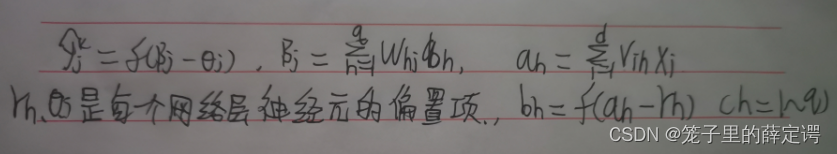 ŷⱼᵏ = f(βⱼ - θⱼ), βⱼ = Σ_{h=1}^{q} w_{hj} b_h, a_h = Σ_{i=1}^{d} v_{ih} x_i
r_h、θⱼ是每个网络层神经元的偏置项, b_h = f(a_h - r_h) (h=1~q)
CSDN @笼子里的薛定谔